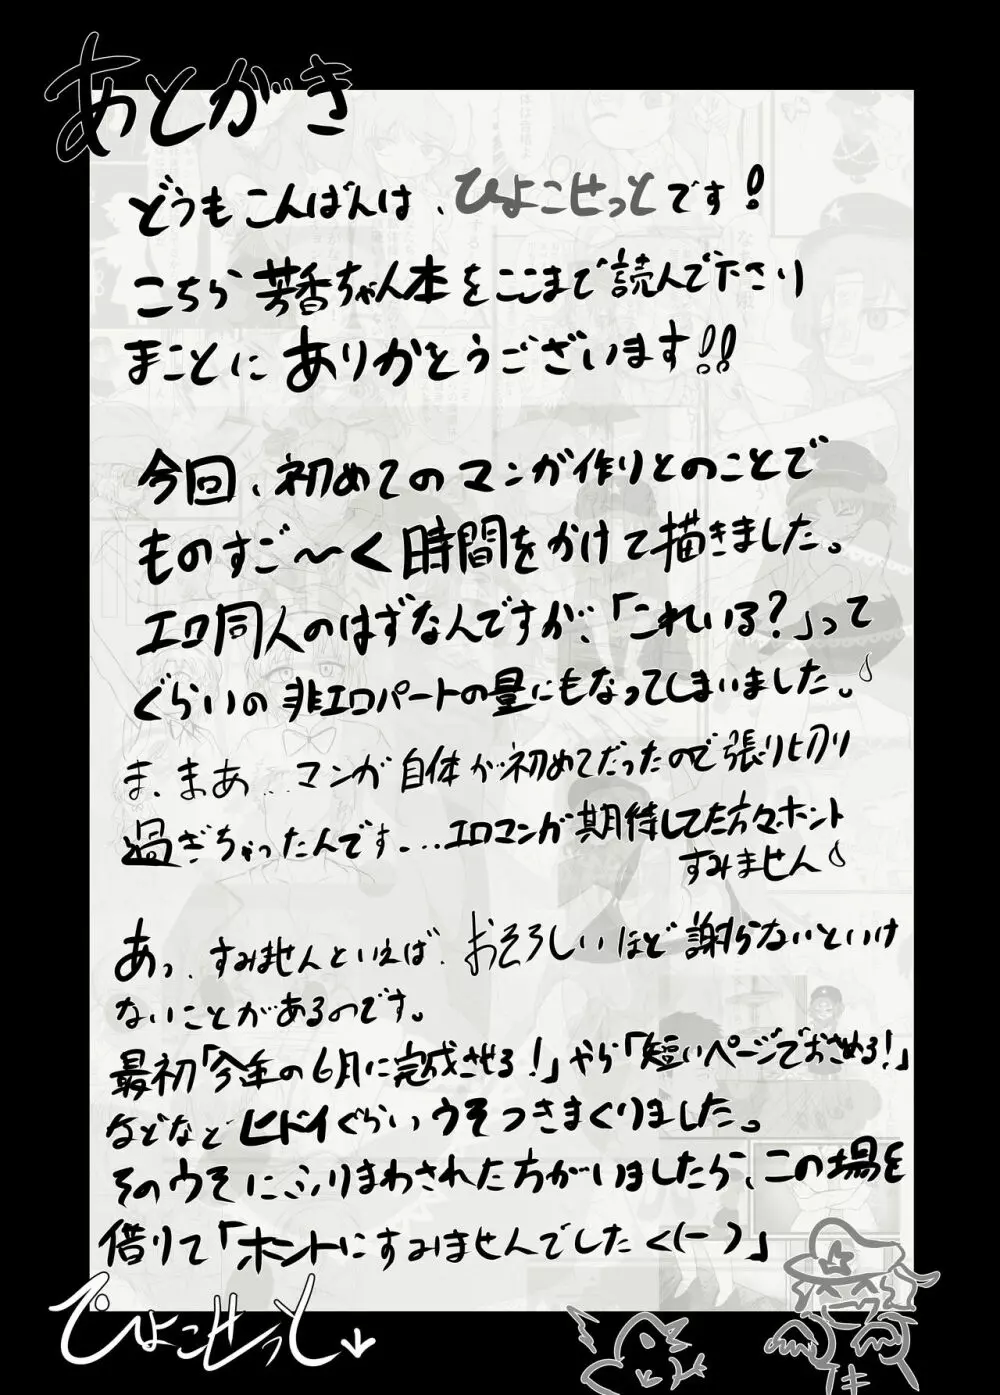 あとがき
どうもこんばんは、ひよこせっとです!
こちら芳香ちゃん本をここまで読んで下さり
まことにありがとうございます!!
今回、初めてのマンガ作りとのことで
ものすご~く時間をかけて描きました。
エロ同人のはずなんですが、「これいる?」って
ぐらいの非エロパートの量にもなってしまいました。
ま、まあ…マンガ自体が初めてだったので張り切り
過ぎちゃったんです…エロマンガ期待してた方々ホント
すみません
あっ、すみませんといえば、おそろしいほど謝らないといけ
ないことがあるのです。
最初「今年の6月に完成させる!」やら「短いページでおさめる!」
などなどヒドイぐらいウソつきまくりました。
そのウソにふりまわされた方がいましたら、この場を
借りて「ホントにすみませんでした<(ー )」
ひよこせっと